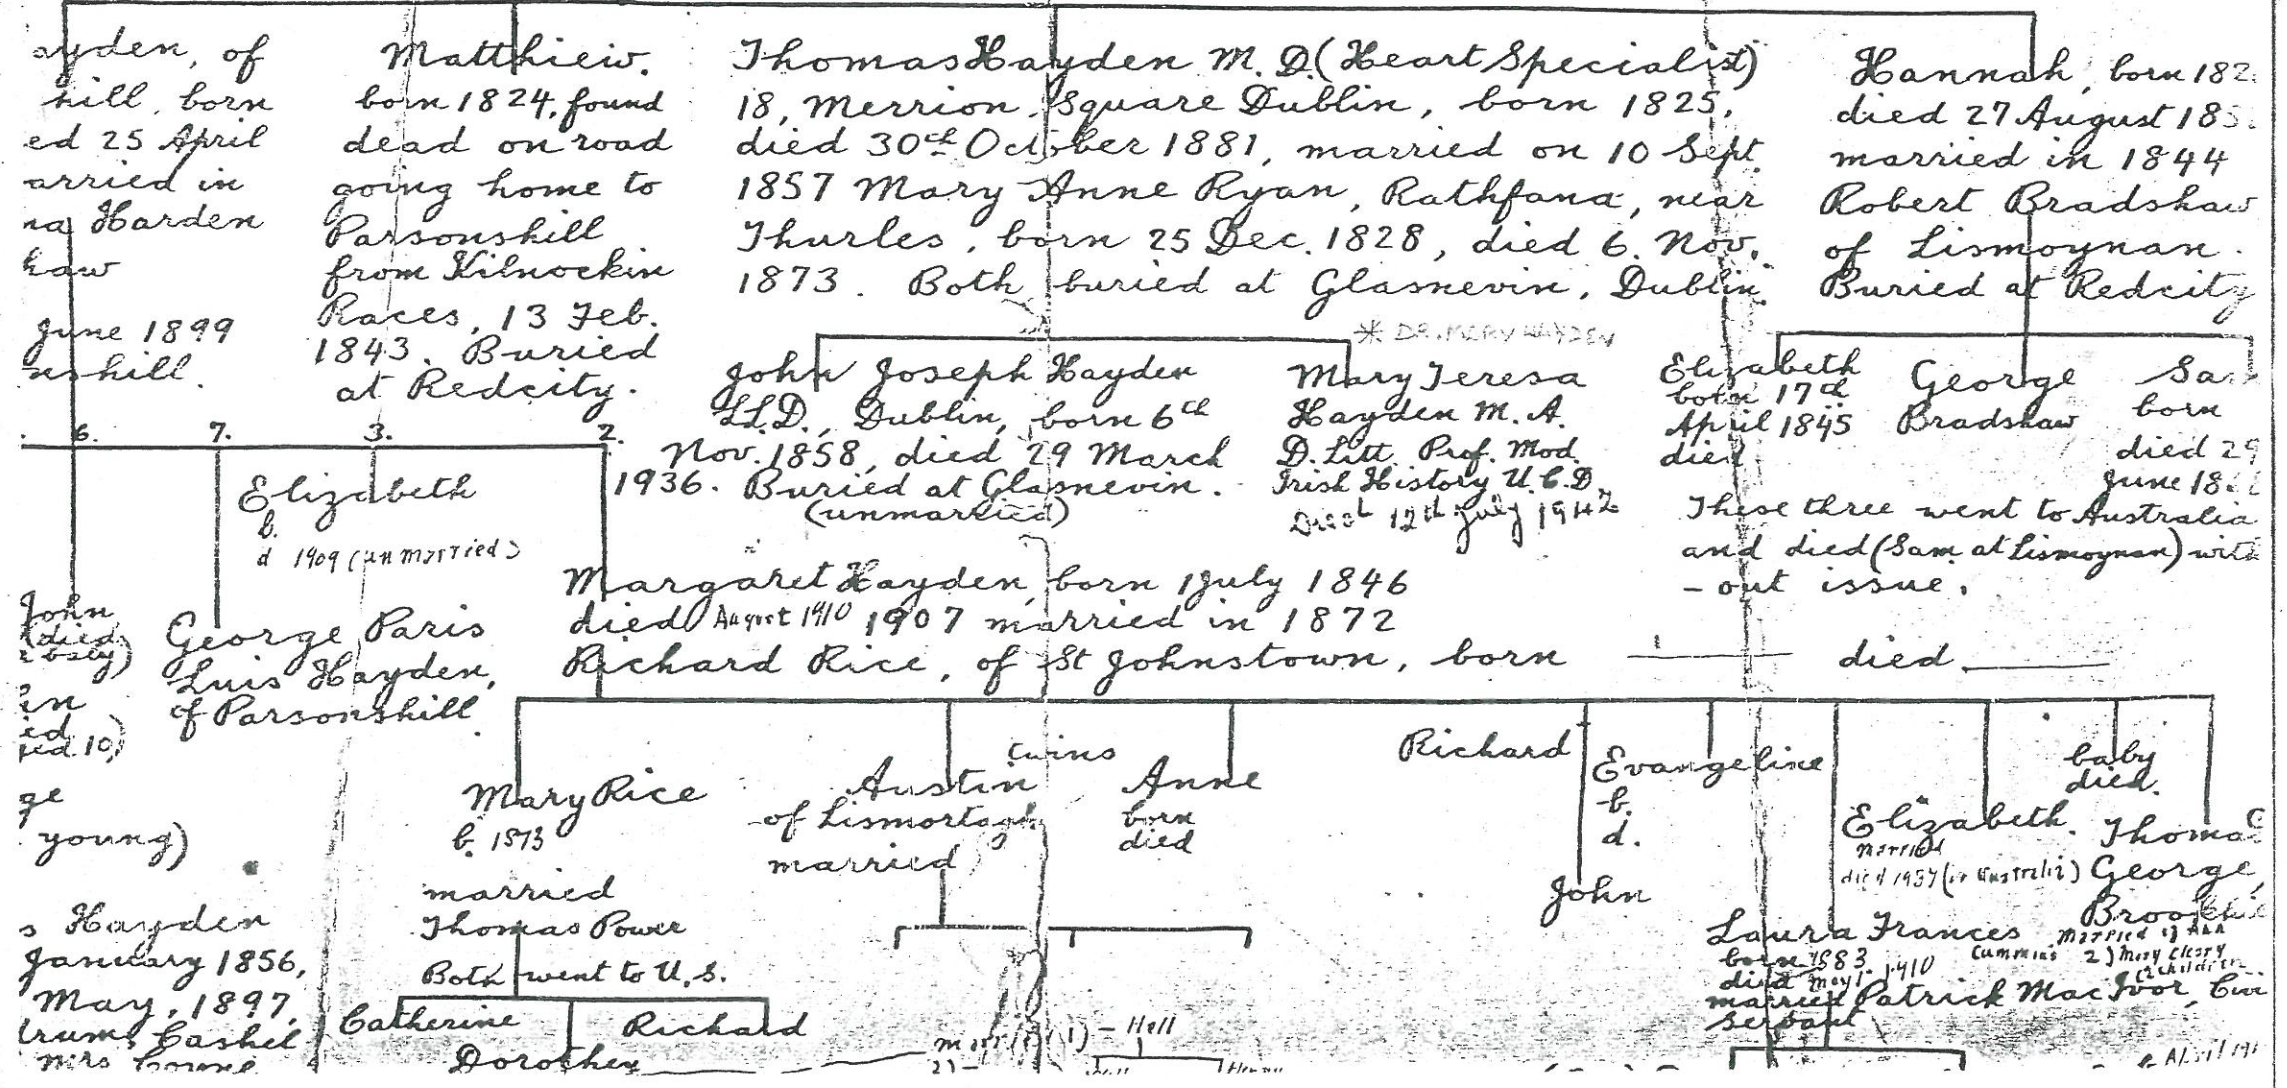 ayden, of
hill, born
ed 25 April
arried in
na Harden
haw
June 1899
nshill.
Matthieiw.
born 1824, found
dead on road
going home to
Parsonshill
from Kilnockin
Races, 13 Feb.
1843. Buried
at Redcity.
Thomas Hayden M.D. (Heart Specialist)
18, Merrion Square Dublin, born 1825,
died 30th October 1881, married on 10 Sept.
1857 Mary Anne Ryan, Rathfana, near
Thurles, born 25 Dec. 1828, died 6. Nov.
1873. Both buried at Glasnevin, Dublin.
Hannah, born 182
died 27 August 185
married in 1844
Robert Bradshaw
of Lismoynan.
Buried at Redcity
* DR. MARY HAYDEN
John Joseph Hayden
LL.D., Dublin, born 6th
Nov. 1858, died 29 March
1936. Buried at Glasnevin.
(unmarried)
Mary Teresa
Hayden M.A.
D. Litt. Prof. Mod.
Irish History U.C.D.
Died 12th July 1942
Elizabeth
born 17th
April 1845
died
George
Bradshaw
Sam
born
died 29
June 18
These three went to Australia
and died (Sam at Lismoynan) with
-out issue.
6. 7. 3. 2.
Elizabeth
b.
d 1909 (unmarried)
John
(died
baby)
George Paris
Luis Hayden,
of Parsonshill
Margaret Hayden, born 1 July 1846
died August 1910 1907 married in 1872
Richard Rice, of St Johnstown, born died
in
ied
ied 10)
ge
young)
s Hayden
January 1856,
May, 1897,
trum, Cashel
Mrs
Mary Rice
b. 1873
married
Thomas Power
Both went to U.S.
Catherine
Dorothea
Richard
twins
Austin
of Lismortagh
married
Anne
born
died
Richard
John
Evangeline
b.
d.
Laura Frances
born 1883
died May 1. 1910
married Patrick MacIvor, Civi
servant
Elizabeth.
married
died 1937 (in Australia)
baby
died.
Thomas
George,
married 1)
Cummins 2) Mary Cleary
married (1) - Hall
2) -